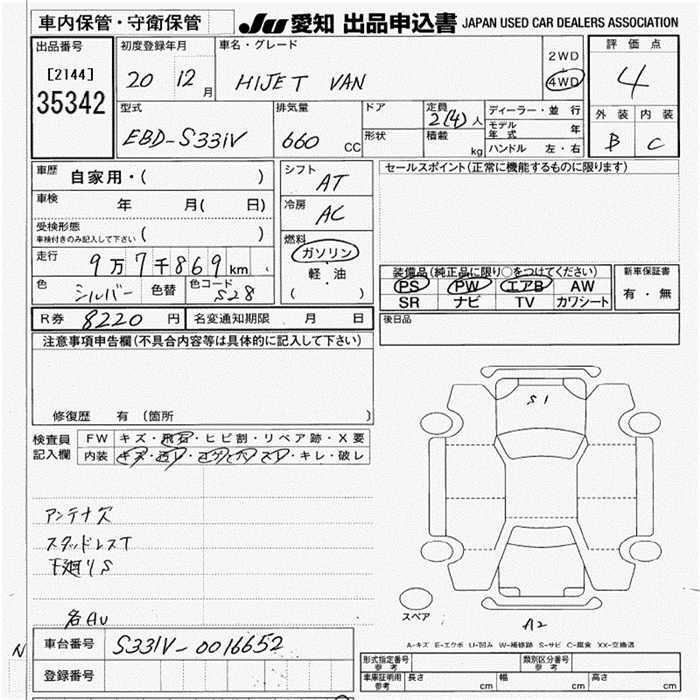 車内保管・守衛保管
JU 愛知 出品申込書 JAPAN USED CAR DEALERS ASSOCIATION
出品番号
[2144]
35342
初度登録年月
20 12月
車名・グレード
HIJET VAN
2WD
4WD
評価点
4
外装 内装
B C
型式
EBD-S331V
排気量
660 CC
ドア
形状
定員 2(4)人
積載 kg
ディーラー・並行
モデル年式 年
ハンドル 左・右
車歴 自家用・( )
車検 年 月( 日)
受検形態
車検付きのみ記入して下さい ( )
走行 9万7千869km
色 シルバー 色替 色コード S28
シフト AT
冷房 AC
燃料
ガソリン
軽・油
( )
セールスポイント(正常に機能するものに限ります)
装備品(純正品に限り○をつけてください)
PS PW エアB AW
SR ナビ TV カワシート
新車保証書
有・無
R券 8220円 名変通知期限 月 日
後日品
注意事項申告欄(不具合内容等は具体的に記入して下さい)
修復歴 有(箇所 )
検査員記入欄
FW キズ・飛石・ヒビ割・リペア跡・X要
内装 キズ・汚レ・コゲ・穴・スレ・キレ・破レ
アンテナ欠
スタッドレスT
下廻りS
各AU
S1
スペア
A2
A-キズ E-エクボ U-凹み W-補修跡 S-サビ C-腐食 XX-交換済
N
車台番号 S331V-0016652
登録番号
形式指定番号 参考 類別区分番号 参考
車庫証明用 参考 長さ cm 幅 cm 高さ cm